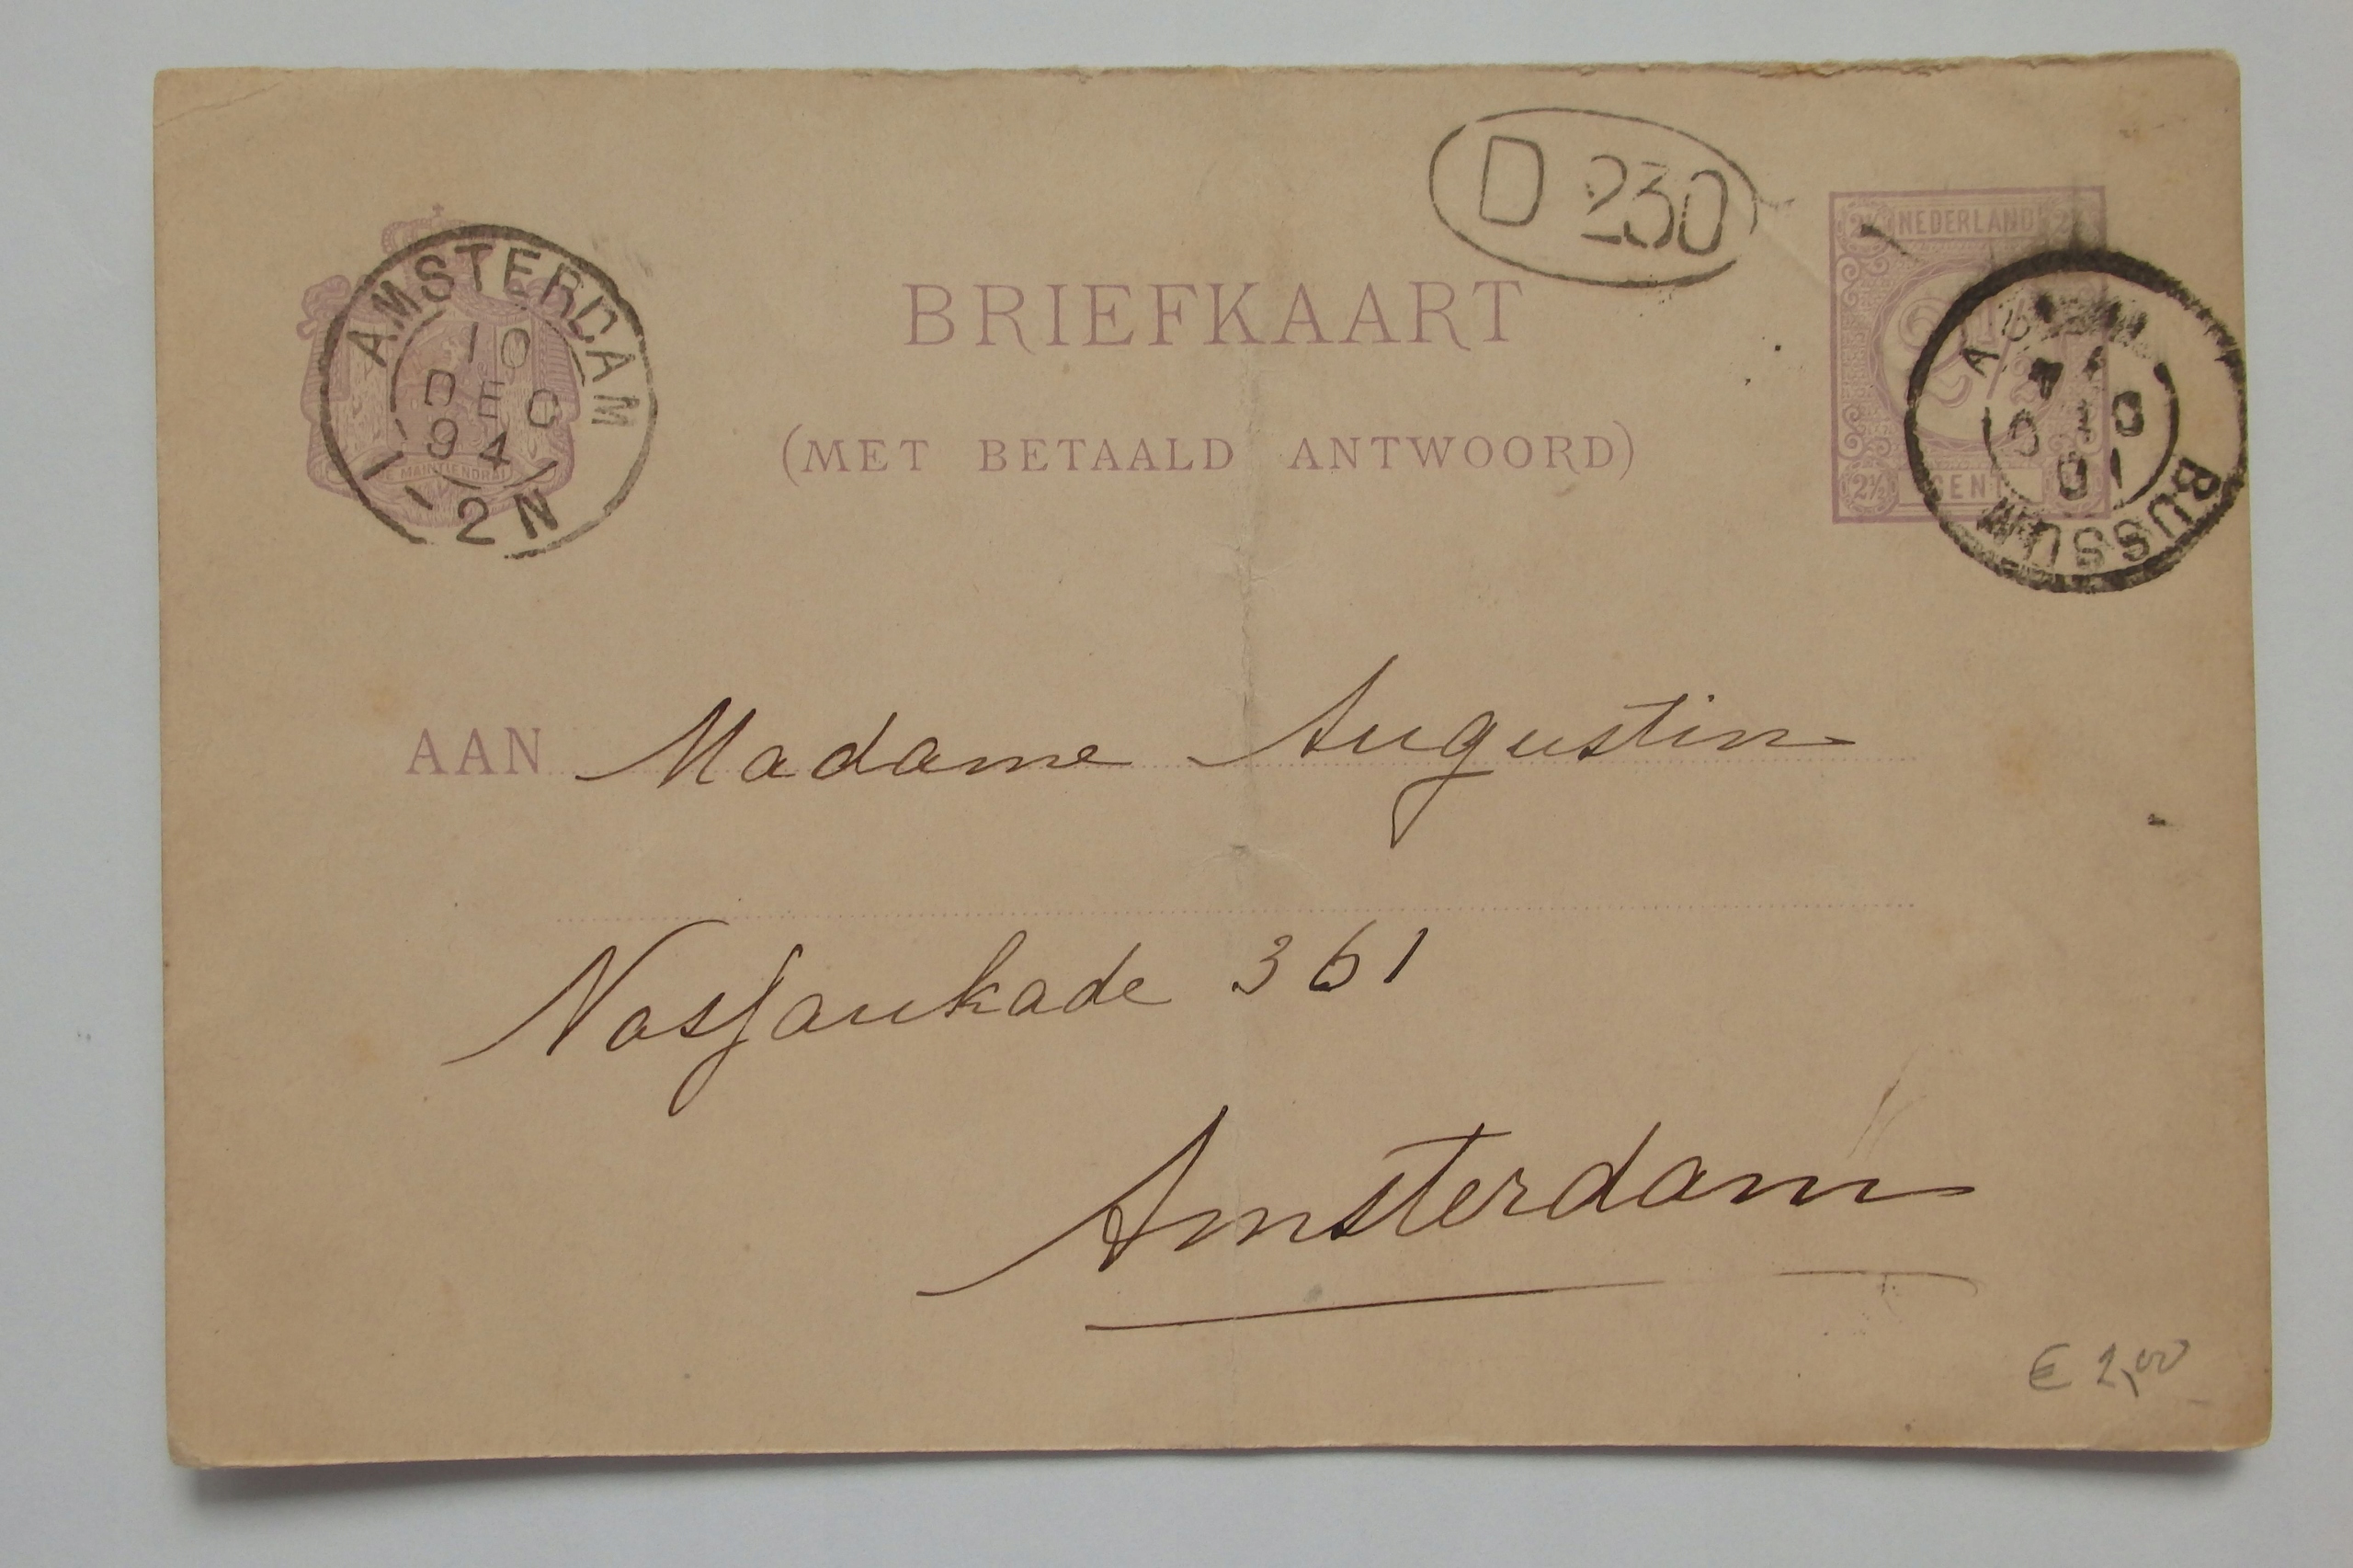 D 230
NEDERLAND
2½
CENT
2½
AMSTERDAM
10
DEC
94
12N
BRIEFKAART
(MET BETAALD ANTWOORD)
BUSSUM
AAN Madame Augustin
Nassaukade 361
Amsterdam
€ 2,00